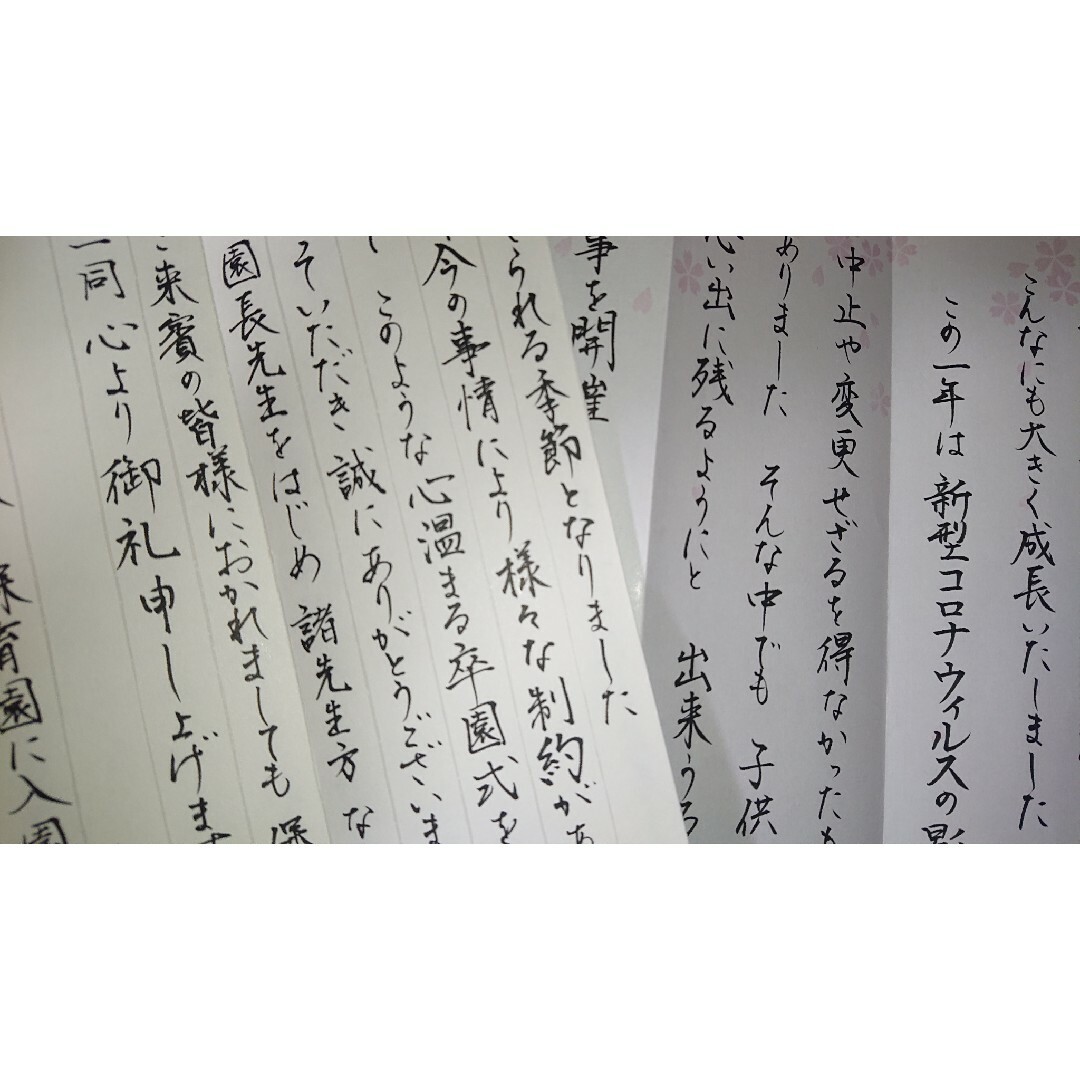 こんなにも大きく成長いたしました
この一年は 新型コロナウィルスの影
中止や変更せざるを得なかったも
ありました そんな中でも 子供
思い出に残るようにと 出来うる
事を開催
られる季節となりました
今の事情により様々な制約があ
このような心温まる卒園式を
ていただき 誠にありがとうございま
園長先生をはじめ 諸先生方 な
来賓の皆様におかれましても 保
一同 心より御礼申し上げます
保育園に入園